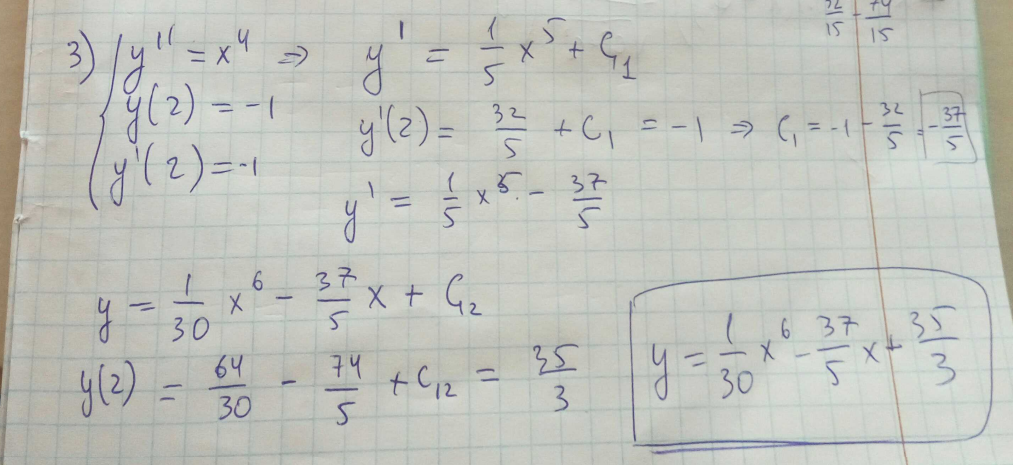 32/15 - 74/15
3) { y'' = x^4 ⇒ y' = 1/5 x^5 + C_1
y(2) = -1
y'(2) = 32/5 + C_1 = -1 ⇒ C_1 = -1 - 32/5 = -37/5
y'(2) = -1
y' = 1/5 x^5 - 37/5
y = 1/30 x^6 - 37/5 x + C_2
y(2) = 64/30 - 74/5 + C_12 = 35/3
y = 1/30 x^6 - 37/5 x + 35/3